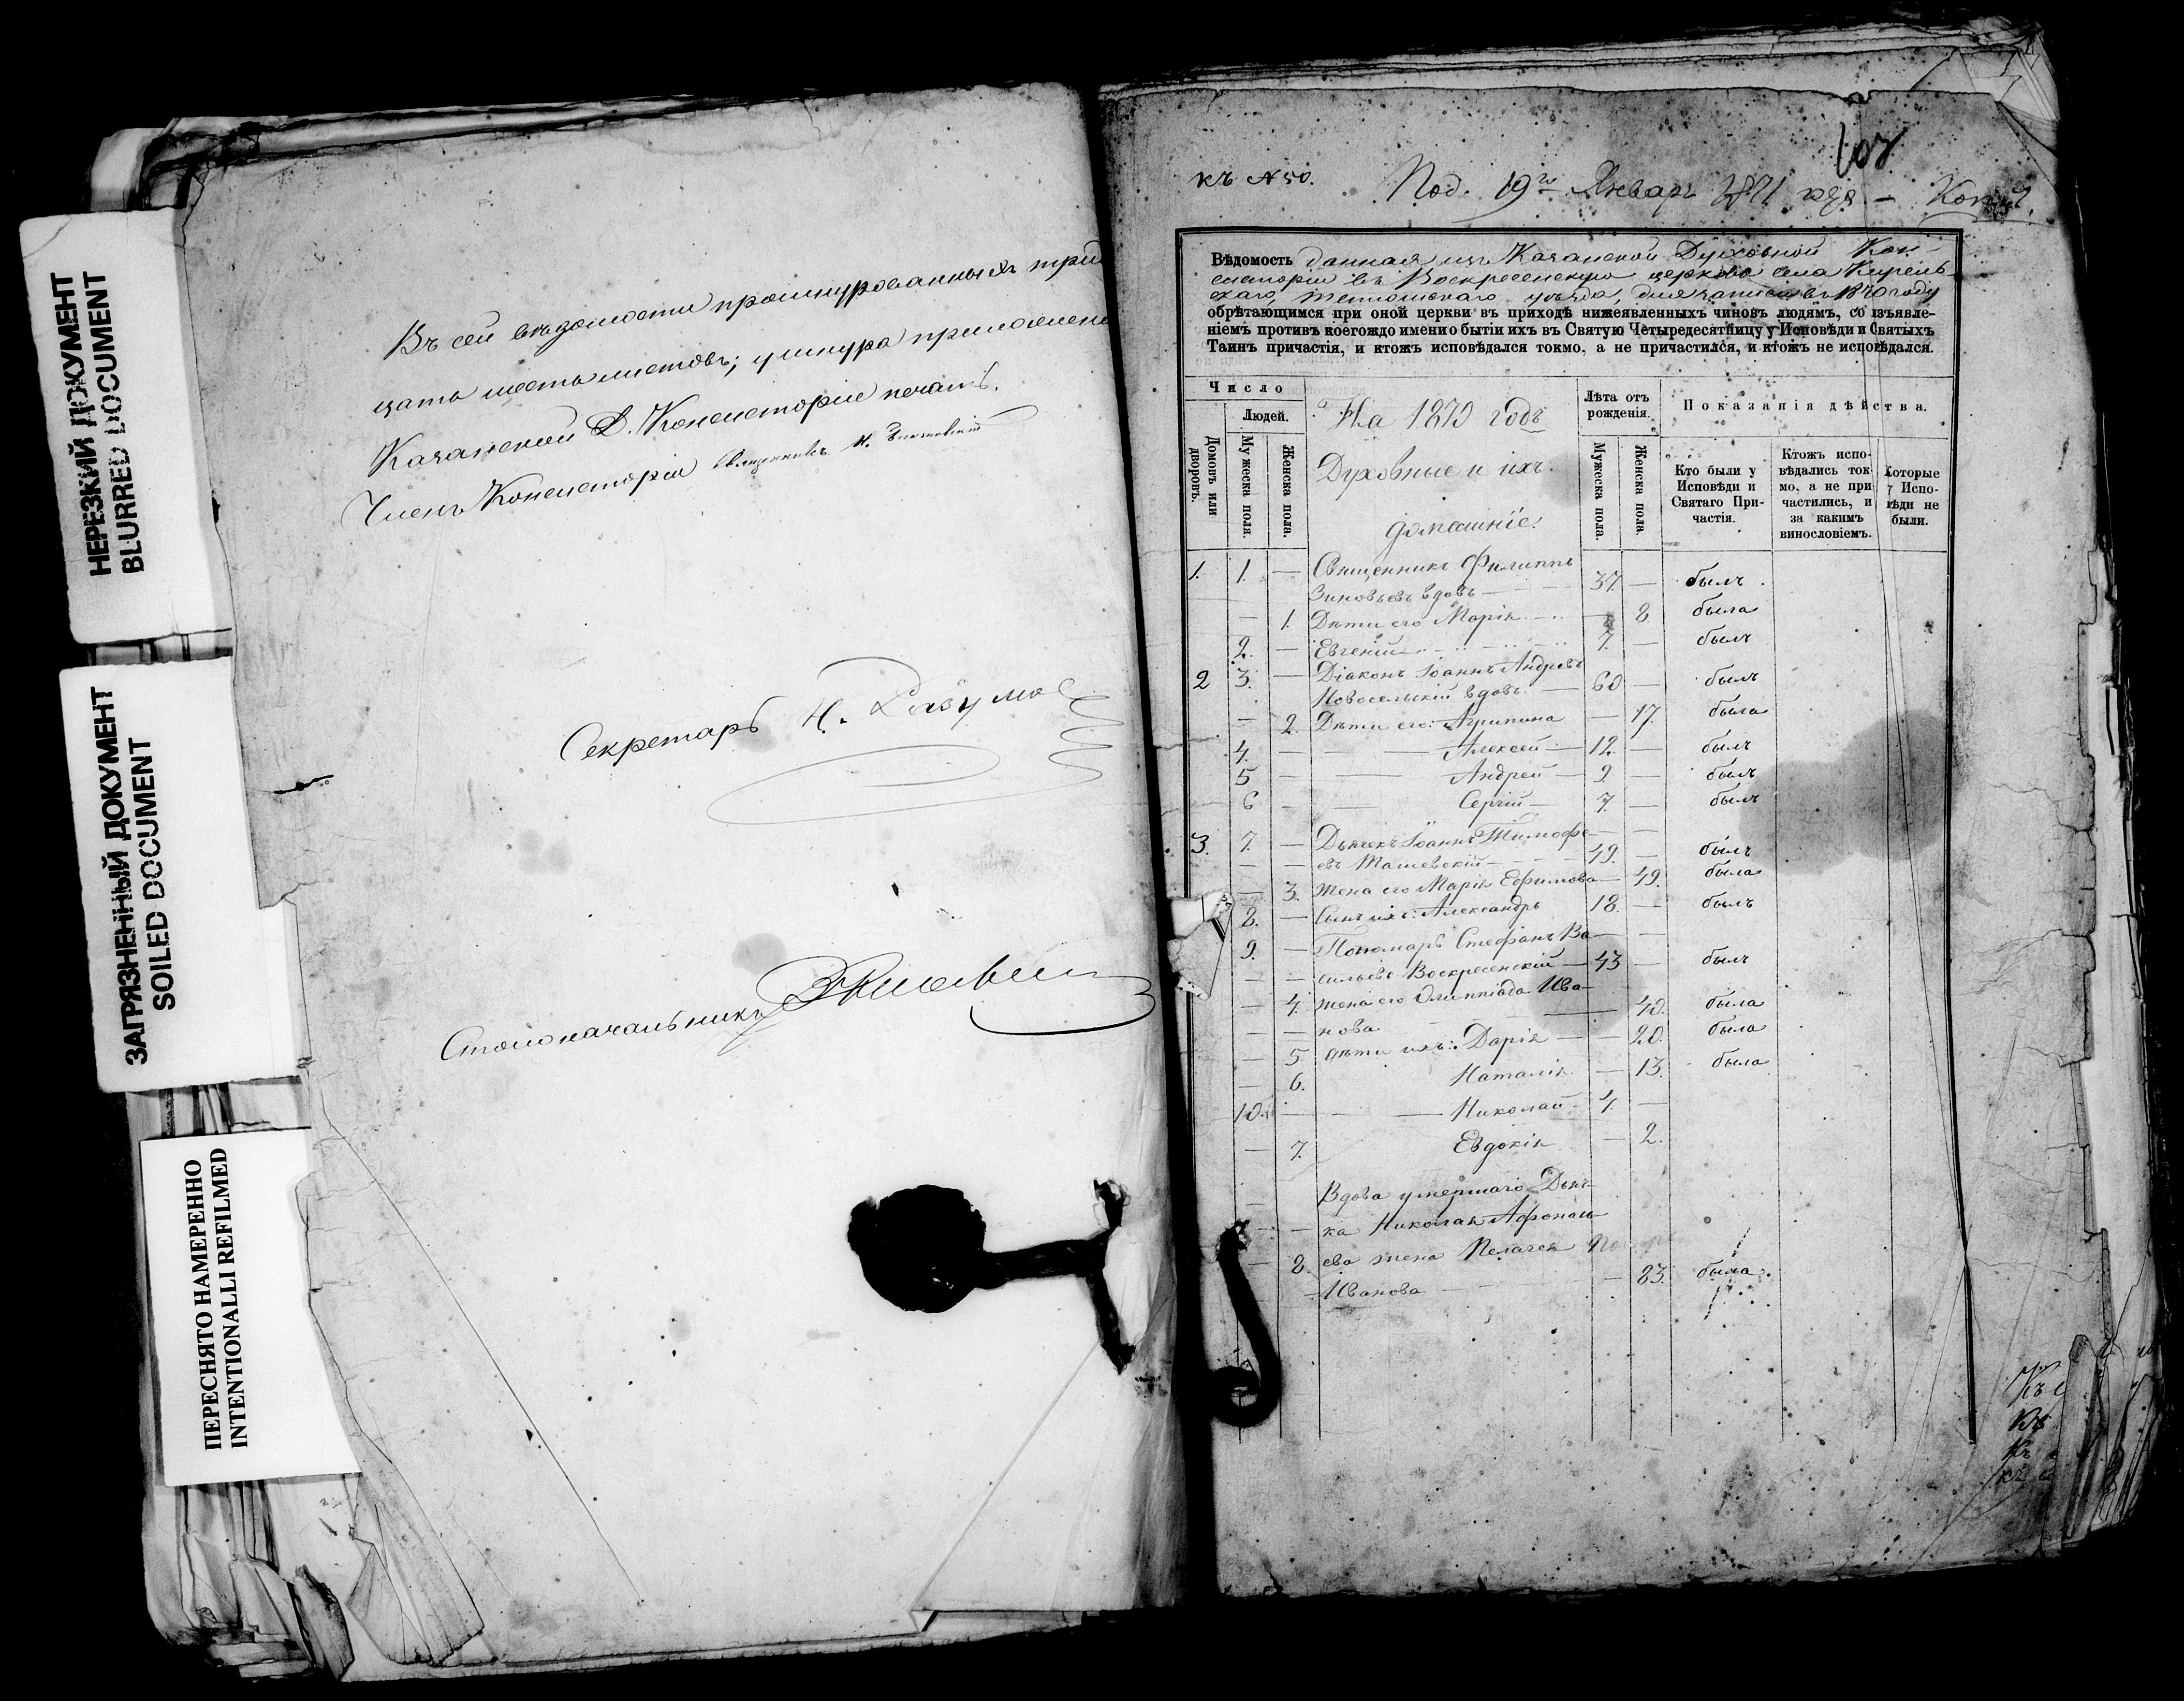 НЕРЕЗКИЙ ДОКУМЕНТ
BLURRED DOCUMENT
ЗАГРЯЗНЕННЫЙ ДОКУМЕНТ
SOILED DOCUMENT
ПЕРЕСНЯТО НАМЕРЕННО
INTENTIONALLI REFILMED
Въ сей вѣдомости прошнурованныхъ трид
цать шесть листовъ; у шнура приложена
Казанской Д. Консисторіи печать.
Членъ Консисторіи Священникъ
Секретарь Н. Разумо
Столоначальникъ
къ №50. Под. 19го Января 1871 года –
Вѣдомость данная изъ Казанской Духовной Кон
систоріи въ Воскресенскую церковь села Кирель
скаго, Тетюшскаго уѣзда, для записи въ 1870 году
обрѣтающимся при оной церкви въ приходѣ нижеявленныхъ чиновъ людямъ, со изъявле-
ніемъ противъ коегождо имени о бытіи ихъ въ Святую Четыредесятницу у Исповѣди и Святыхъ
Таинъ причастія, и ктожъ исповѣдался токмо, а не причастился, и ктожъ не исповѣдался.
Число
Людей.
Домовъ или дворовъ.
Мужеска пола.
Женска пола.
На 1870 годъ
Духовные и ихъ
домашніе.
Лѣта отъ рожденія.
Мужеска пола.
Женска пола
Показанія дѣйства.
Кто были у Исповѣди и Святаго При-частія.
Ктожъ испо-вѣдались ток-мо, а не при-частились, и за какимъ винословіемъ.
Которые у Испо-вѣди не были.
1. 1. — Священникъ Филиппъ
Зиновьевъ вдовъ — 37. — былъ
— 1. Дѣти его Марія — 8. была
2. — Евгеній 7. — былъ
2 3. — Діаконъ Іоаннъ Андреевъ
Новосельскій вдовъ. — 60 — былъ
— 2. Дѣти его: Агрипина — 17. была
4. — Алексей — 12. — былъ
5 — Андрей — 9. — былъ
6 — Сергій — 7. — былъ
3. 7. — Дьячекъ Іоаннъ Тимофе-
евъ Ташевскій — 49. — былъ
— 3. Жена его Марія Ефимова — 49. была
8. — Сынъ ихъ: Александръ 18. — былъ
9. — Пономарь Стефанъ Ва-
сильевъ Воскресенскій — 43 — былъ
— 4. Жена его Олимпіада Ива-
нова. — 40. была
— 5 Дѣти ихъ: Дарія — 20. была
— 6. Наталія — 13. была
10. — Николай 4. —
— 7. Евдокія — 2.
Вдова умершаго Дьяч-
ка Николая Афонась
— 8. ева жена Пелагея
Иванова — 83. была